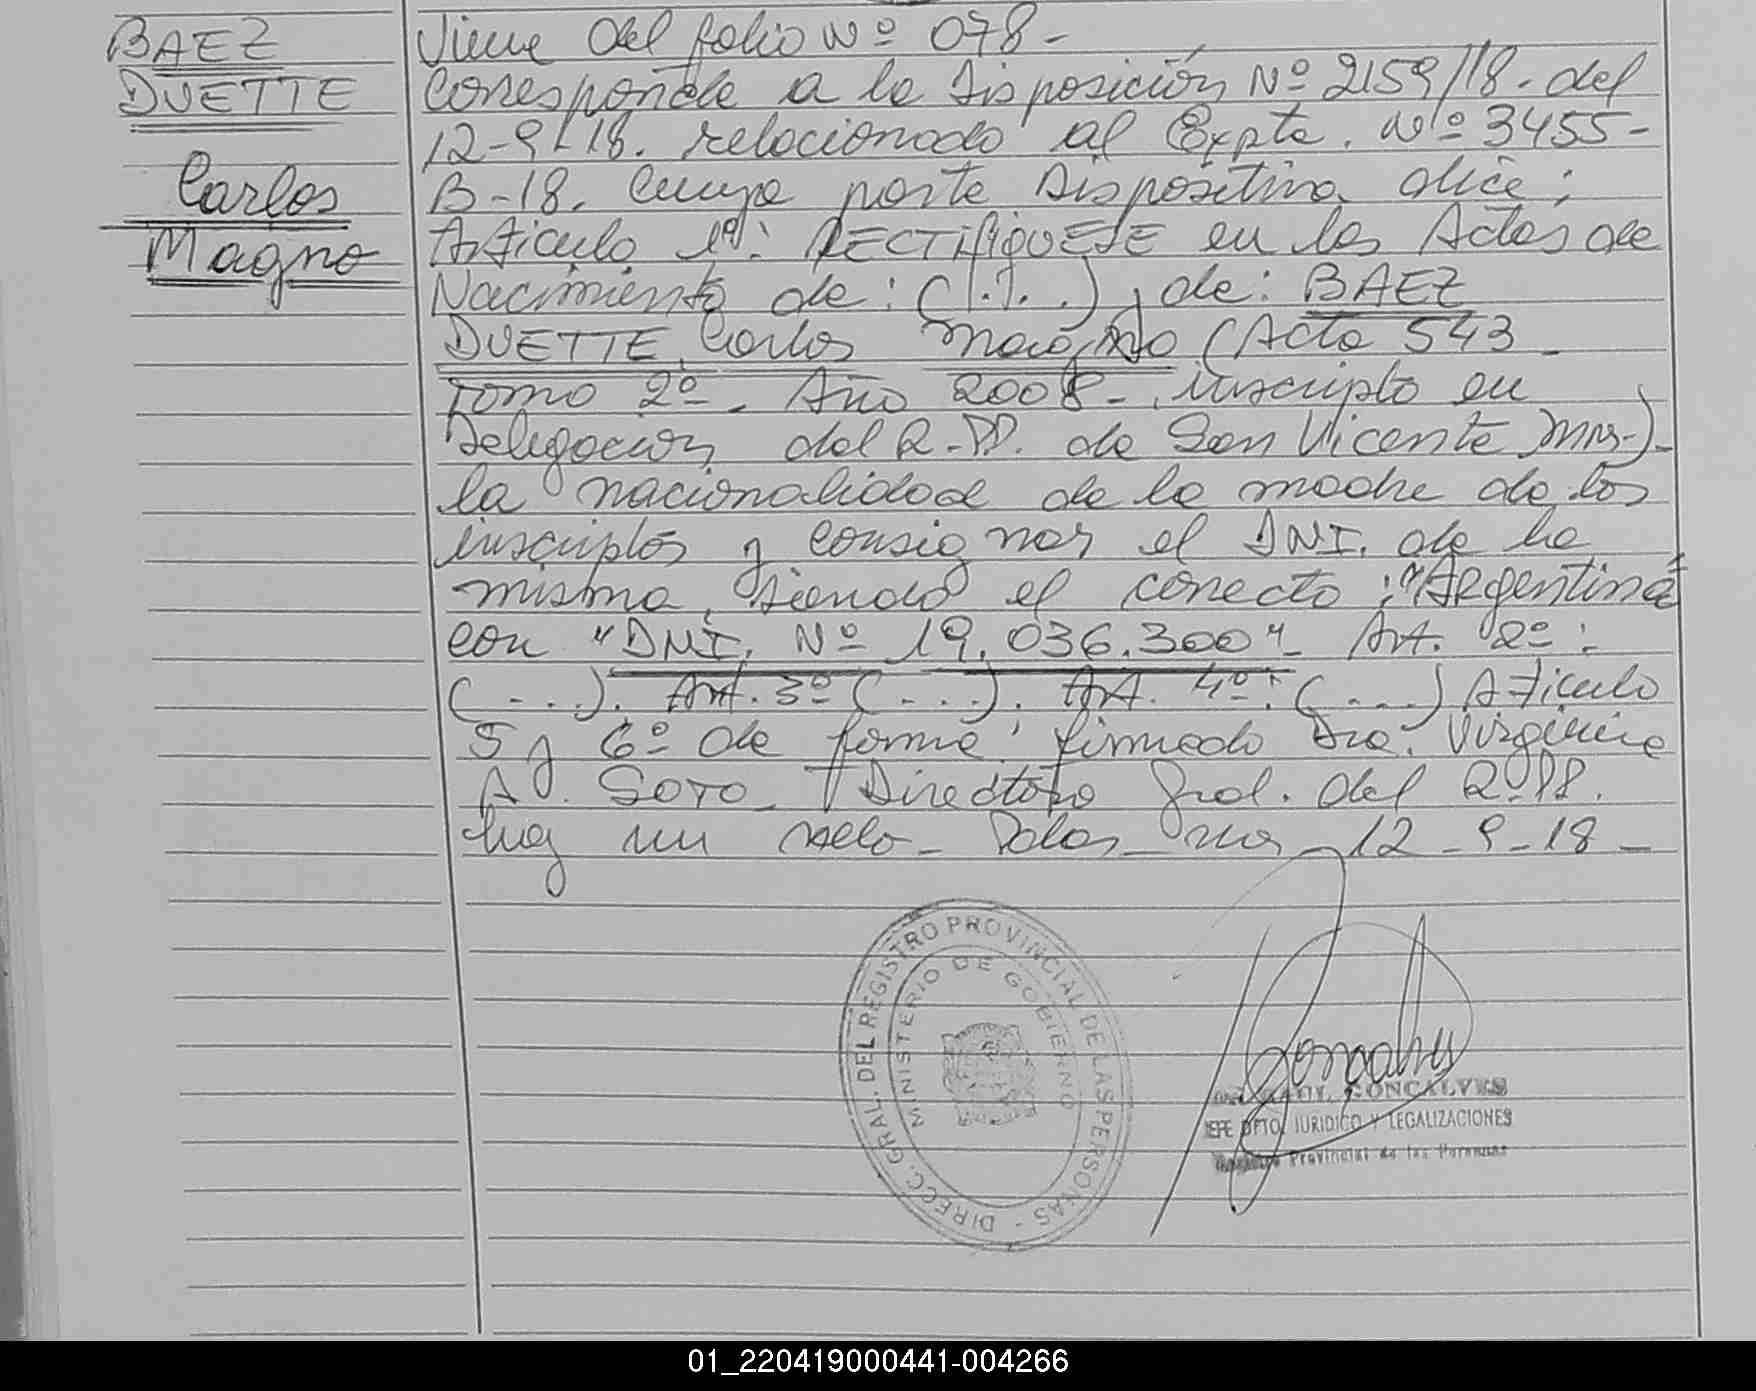 BAEZ
DUETTE
Carlos
Magno
Viene del folio Nº 078-
Corresponde a la Disposición Nº 2159/18. del
12-9-18. relacionado al Expte. Nº 3455-
B-18. Cuya parte Dispositiva dice:
Artículo 1º: RECTIFIQUESE en las Actas de
Nacimiento de: (...), de: BAEZ
DUETTE, Carlos Magno (Acta 543 -
Tomo 2º - Año 2008 - inscripto en
Delegación del R.PP. de San Vicente Mns-)-
la nacionalidad de la madre de los
inscriptos y consignar el DNI. de la
misma, siendo el correcto: "Argentina"
con "DNI. Nº 19.036.300"- Art. 2º:
(...). Art. 3º (...). Art. 4º: (...) Artículo
5 y 6º de forma: firmado Dra. Virginia
A. SOTO - Directora Gral. del R.PP.
hay un sello - Pdas Mns - 12-9-18 -
DIRECC. GRAL. DEL REGISTRO PROVINCIAL DE LAS PERSONAS -
MINISTERIO DE GOBIERNO
GONCALVES
JEFE DPTO. JURIDICO Y LEGALIZACIONES
Registro Provincial de las Personas
01_220419000441-004266